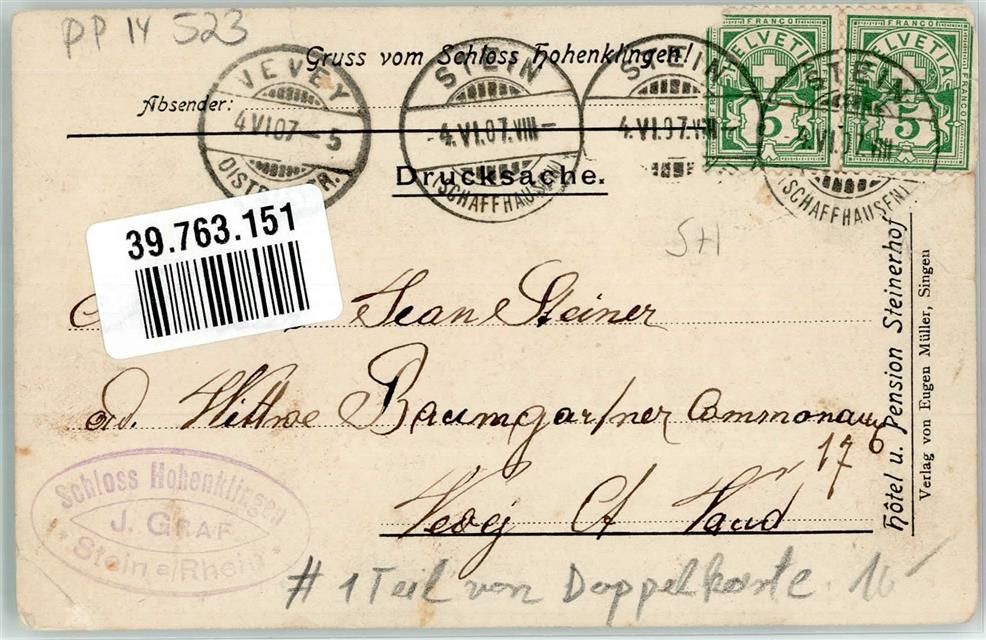 PP 14 523
Gruss vom Schloss Hohenklingen!
Absender:
VEVEY
4 VI 07 - 5
STEIN
-4.VI.07.VIII-
(SCHAFFHAUSEN)
STEIN
4.VI.07.VIII-
STEIN
4.VI.07.VIII
(SCHAFFHAUSEN)
FRANCO
HELVETIA
5
FRANCO
HELVETIA
5
Drucksache.
SH
39.763.151
Jean Steiner
ad. Wittwe Baumgartner
17
Vevey Ct Vaud
Schloss Hohenklingen
J. GRAF
* Stein a/Rhein *
# 1 Teil von Doppelkarte 16
Hôtel u. Pension Steinerhof
Verlag von Eugen Müller, Singen